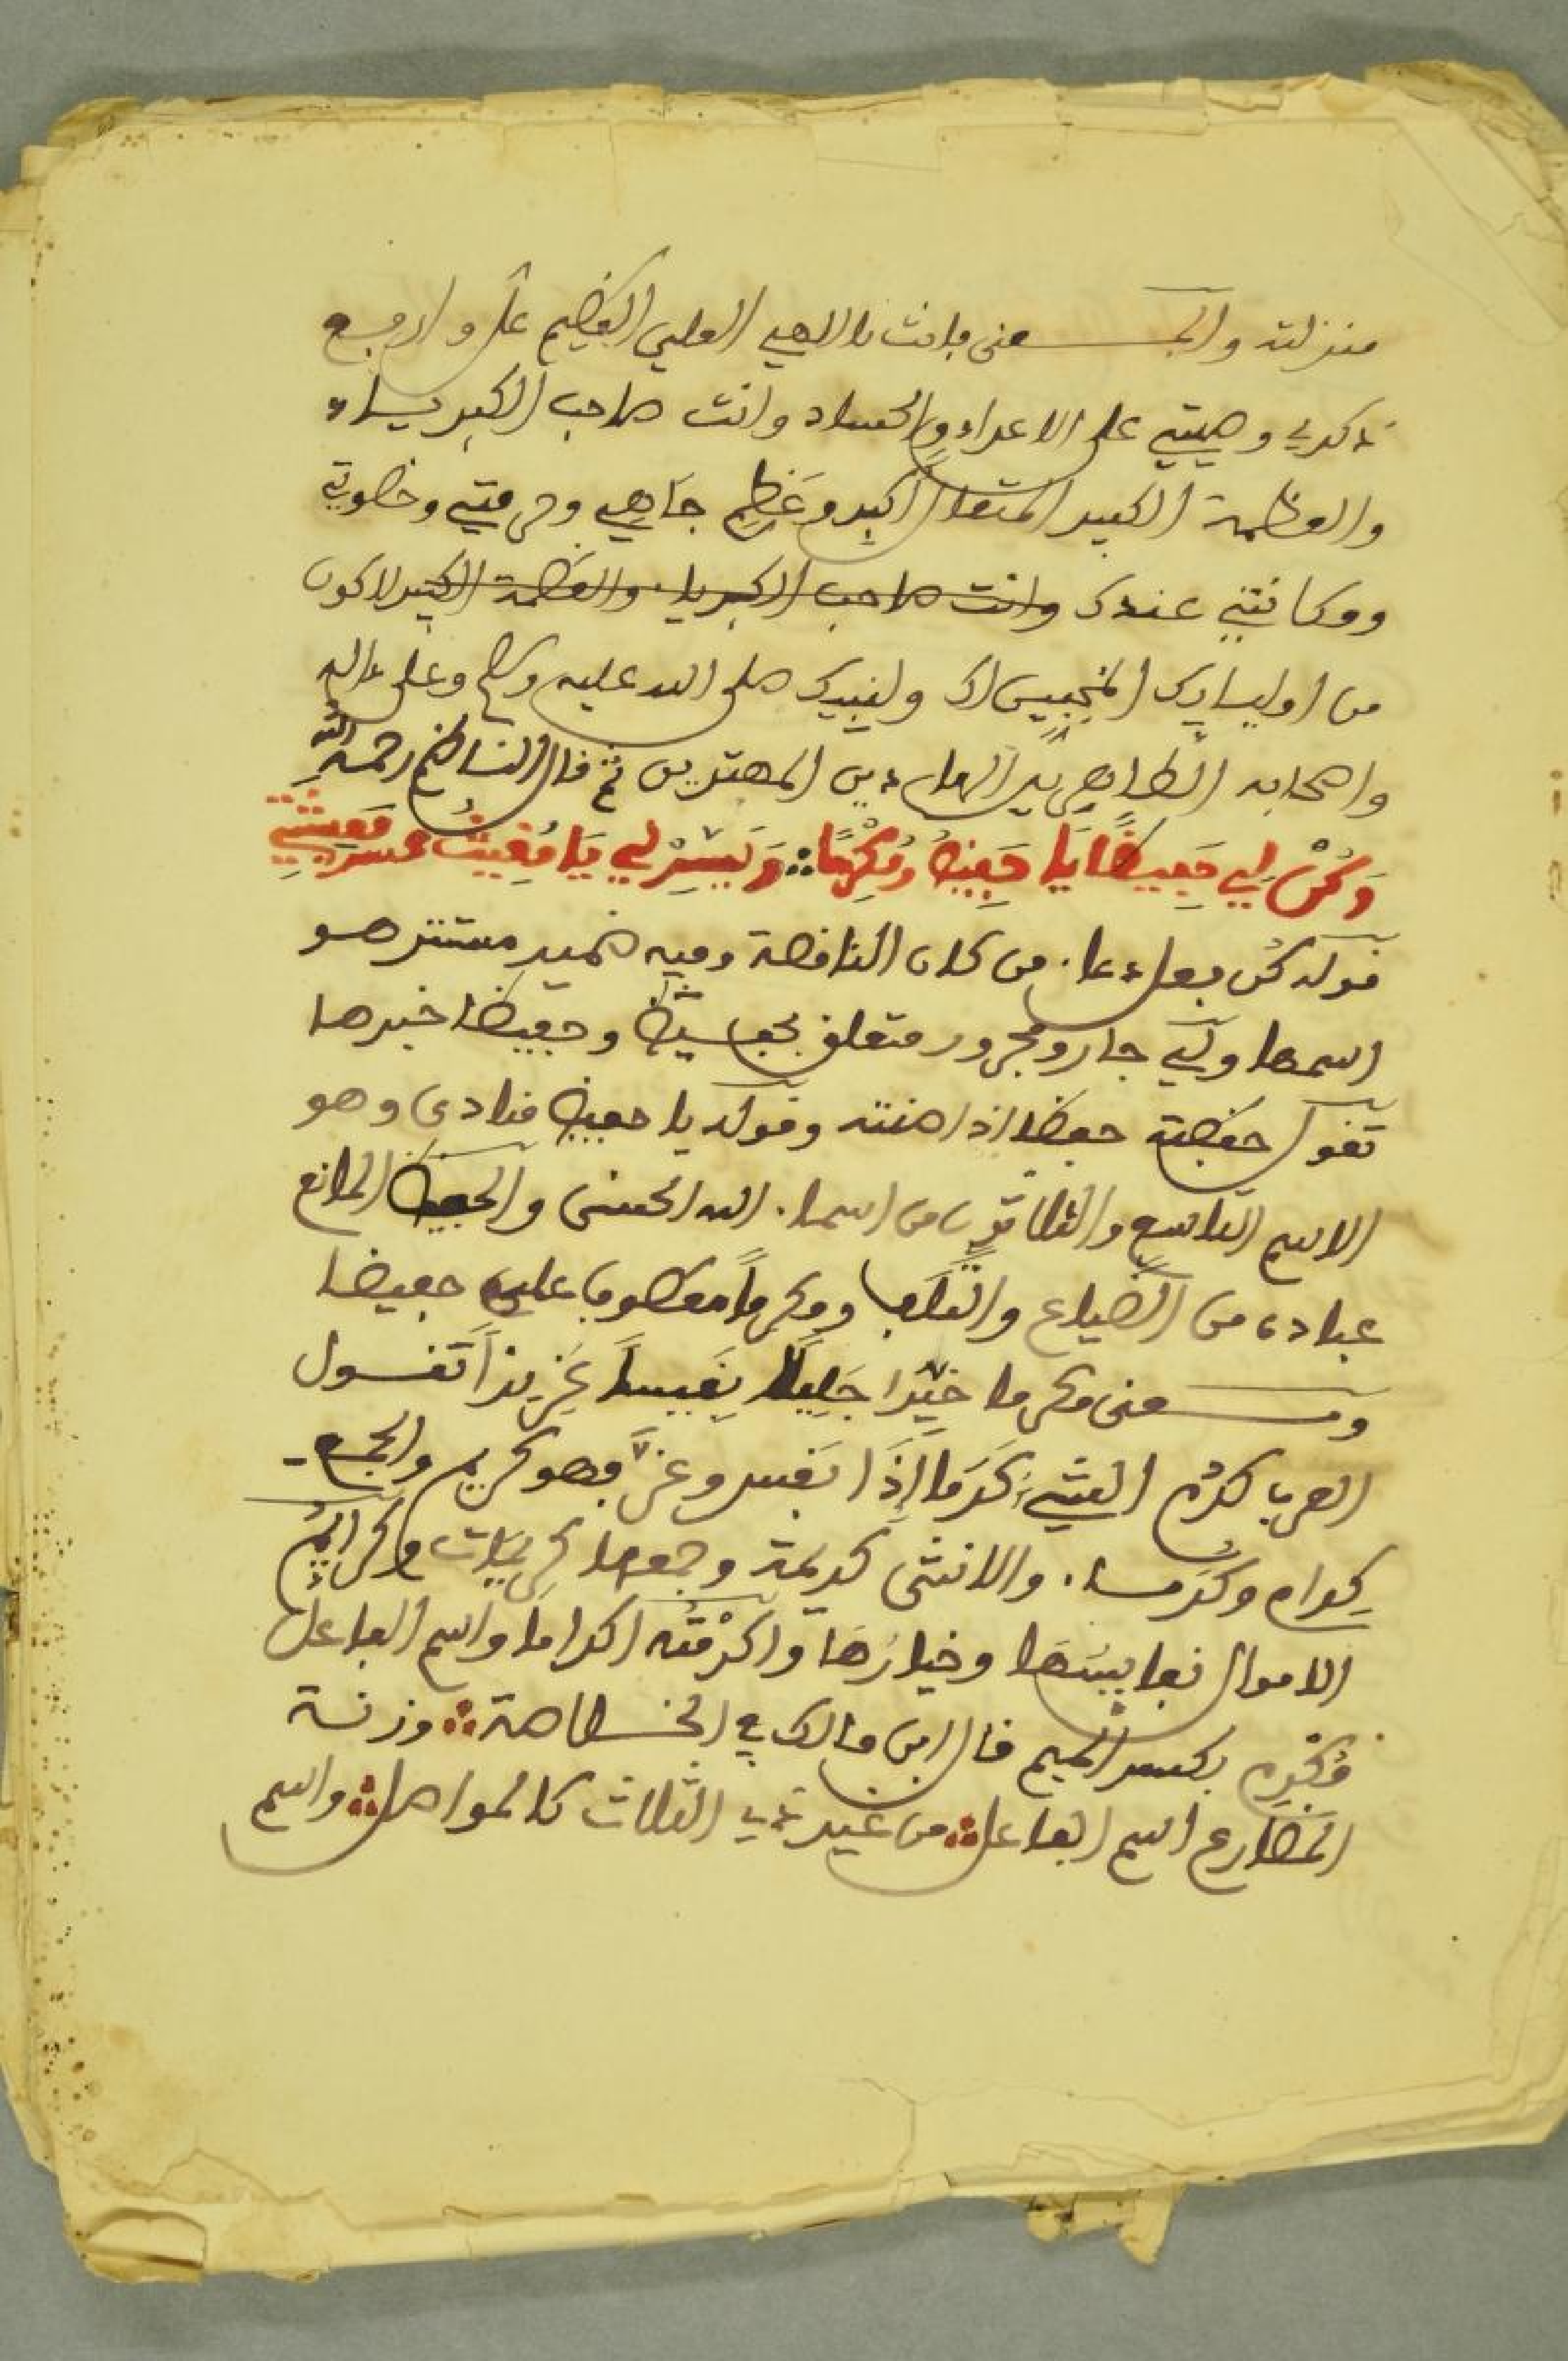 منزلته والمعنى فانت يا الهي العلي العظيم عل وارفع
ذكري وهيبتي على الاعداء والحساد وانت صاحب الكبرياء
والعظمة الكبير المتعال اكبر وعَظِّم جاهي وحرمتي وحظوتي
ومكانتي عندك وانت صاحب الكبرياء والعظمة الكبير لاكون
من اوليايك المحبين لك ولنبيك صلى الله عليه وسلم وعلى ءاله
واصحابه الطاهرين الهادين المهتدين ثم قال الناظم رحمه الله
وَكُنْ لِي حَفِيظًا يَا حَفِيظُ وَمُكْرِمًا ∴ وَيَسِّرْ لِي يَا مُقِيتُ مَعِيشَتِي
قوله كُن فعل دعاء من كان الناقصة وفيه ضمير مستتر هو
اسمها ولي جار ومجرور متعلق بحفيظا وحفيظا خبرها
تقول حفظته حفظا اذا صنته وقوله يا حفيظ منادى وهو
الاسم التاسع والثلاثون من اسماء الله الحسنى والحفيظ المانع
عباده من الضياع والتلف ومكرماً معطوف على حفيظا
ومعنى مكرما خَيِّرا جَلِيلًا نَفِيساً عَزِيزاً تقول
العرب كرُم الشيءُ كَرَما إِذَا نفس وعزَّ فهو كريم والجمع
كِرام وكرماء والانثى كريمة وجمعها كريمات وكرائمُ
الاموال نفايسُها وخيارُها واكرمْتُه اكراما واسم الفاعل
مُكْرِم بكسر الميم قال ابن مالك في الخلاصة ∴ وزنة
المضارع اسم الفاعل ∴ من غير ذي الثلاث كالمواصل ∴ واسم